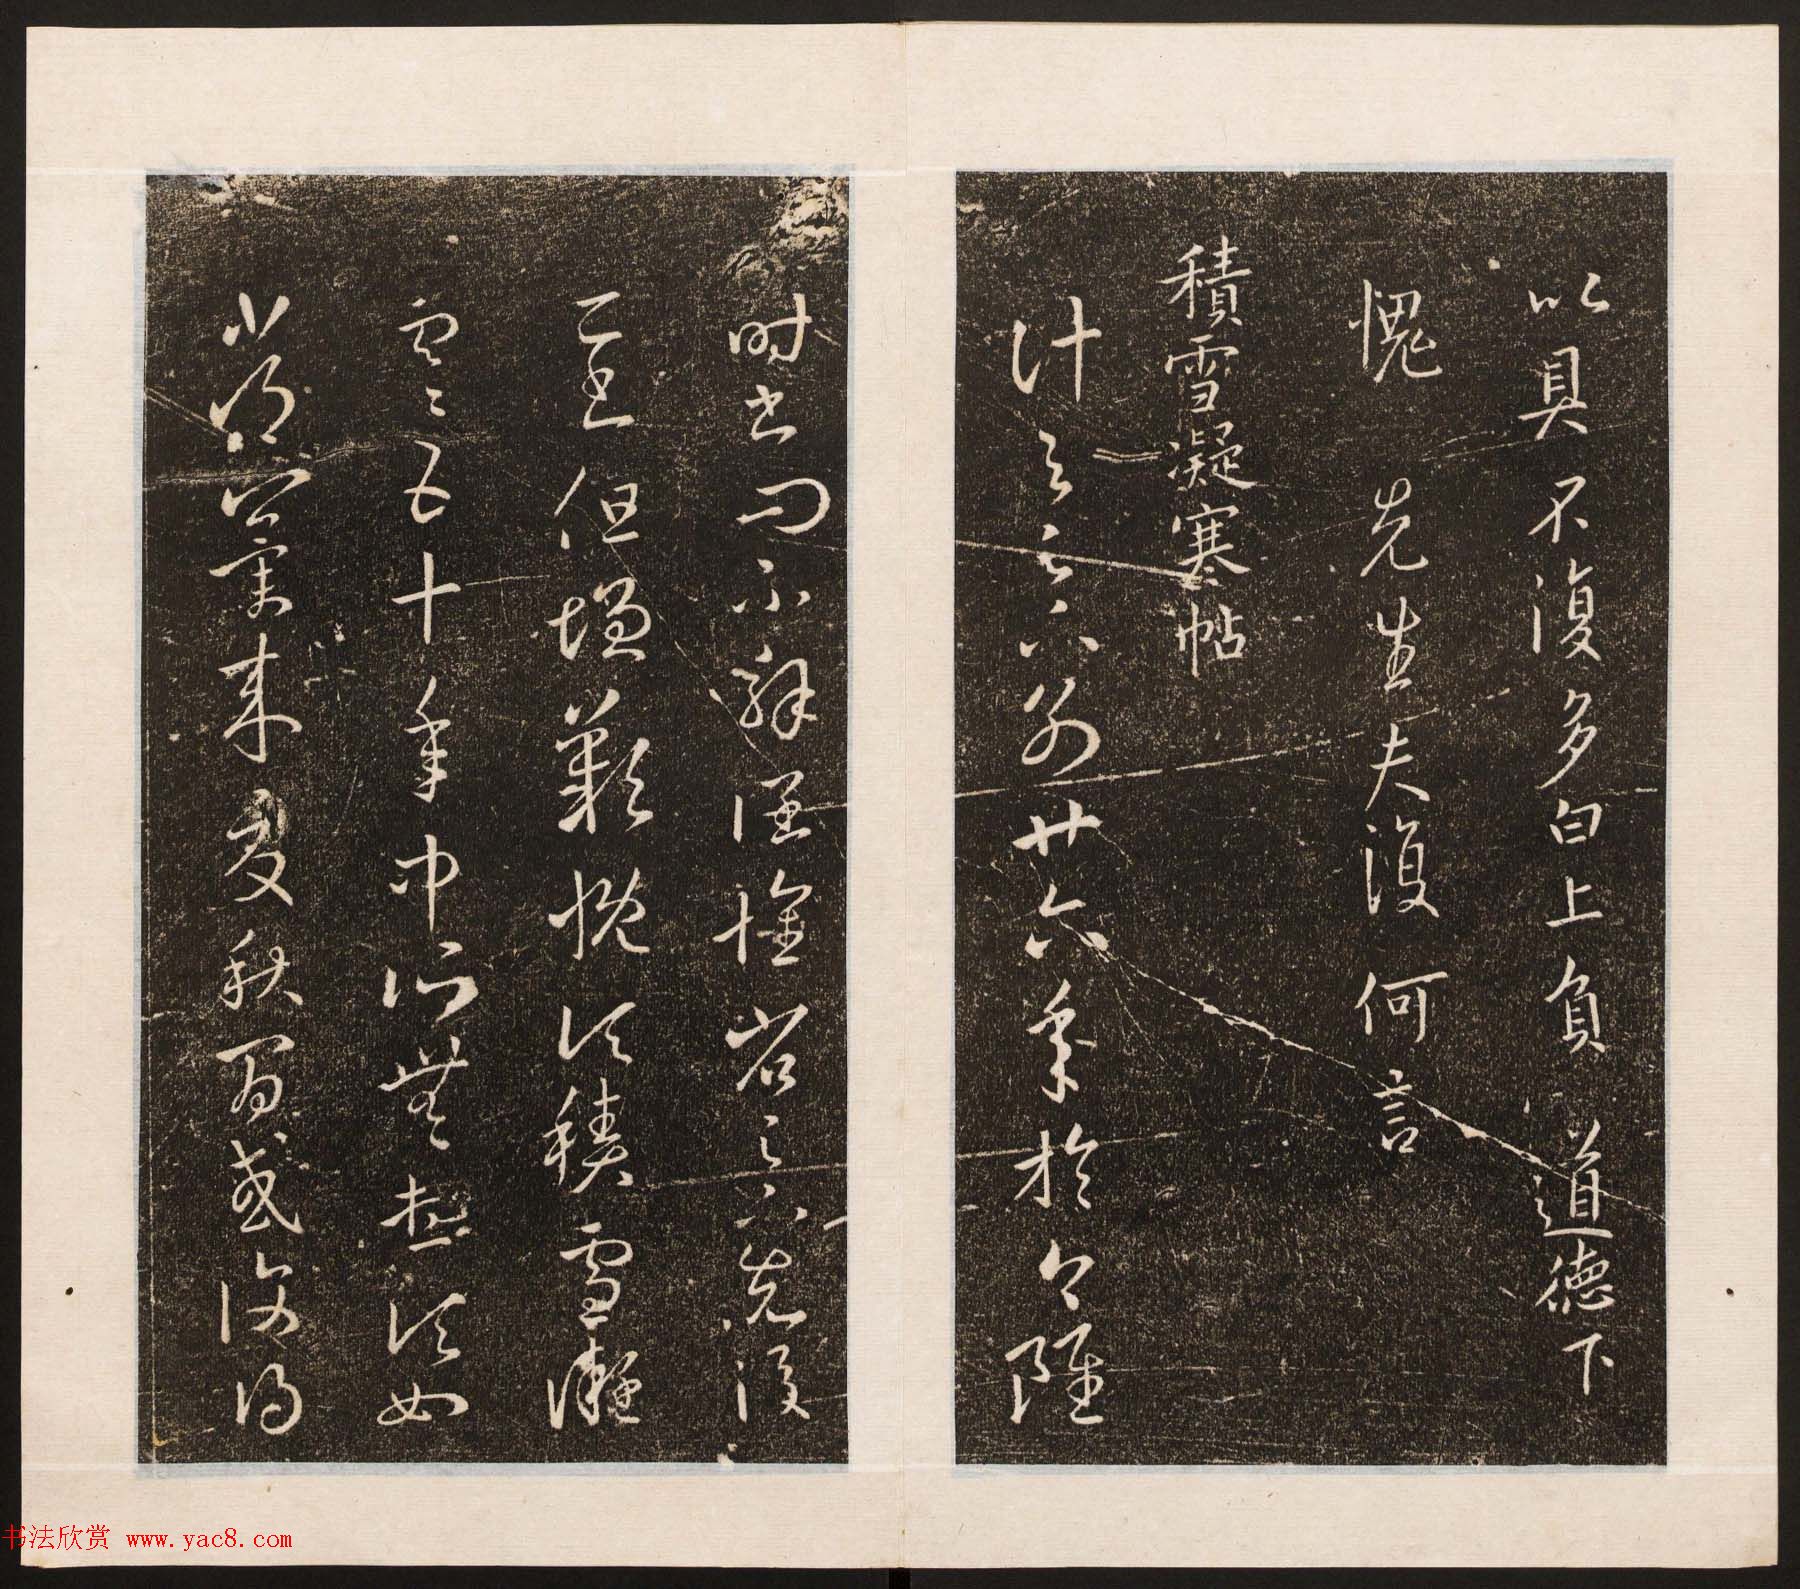 以具不復多白上負道德下
愧先生夫復何言
積雪凝寒帖
計與足下別廿六年於今雖
時書問不解闊懷省足下先後
二書但增歎慨頃積雪凝
寒五十年中所無想頃如
常冀來夏秋間或復得
书法欣赏 www.yac8.com